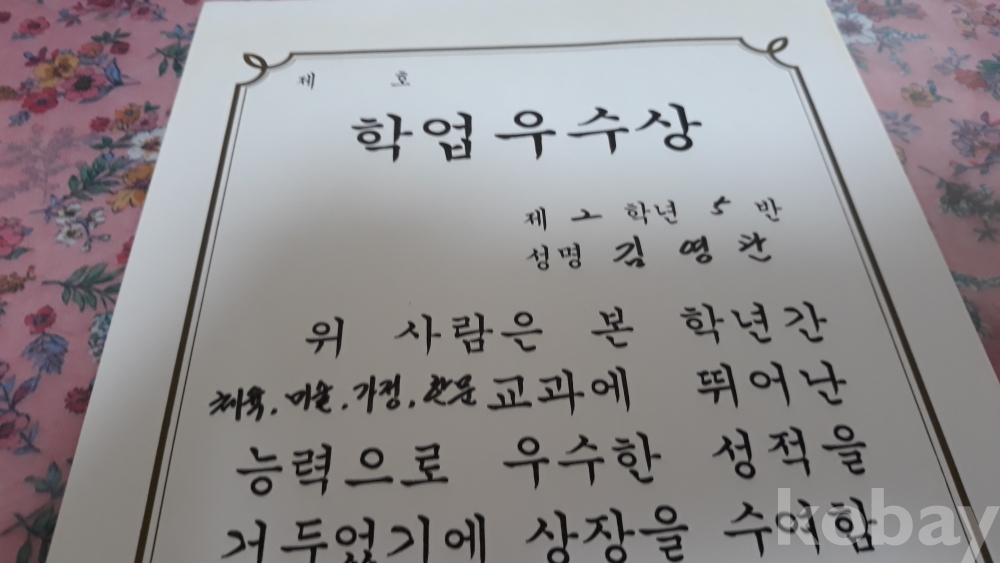 제 호
학업우수상
제 2 학년 5 반
성명 김영찬
위 사람은 본 학년간
체육, 미술, 가정, 한문 교과에 뛰어난
능력으로 우수한 성적을
거두었기에 상장을 수여함
kobay